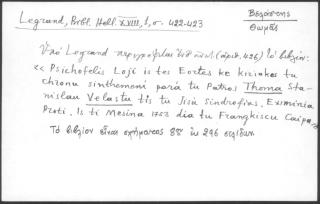 Legrand, Bibl. Hell. XVIII, 1, σ. 422-423
Βελάστης
Θωμᾶς
Ὑπὸ Legrand περιγράφεται (ἀριθ. 426) τὸ βιβλίον:
« Psichofelis Loji is tes Eortes ke kiriakes tu
chronu sinthemeni pará tu Patros Thoma Sta-
nislau Velastu tis tu Jisù Sindrofias. Eximinia
Proti. Is ti Mesina 1753 dia tu Frangkiscu Caipar
Τὸ βιβλίον εἶναι σχήματος 8ον ἐκ 296 σελίδων